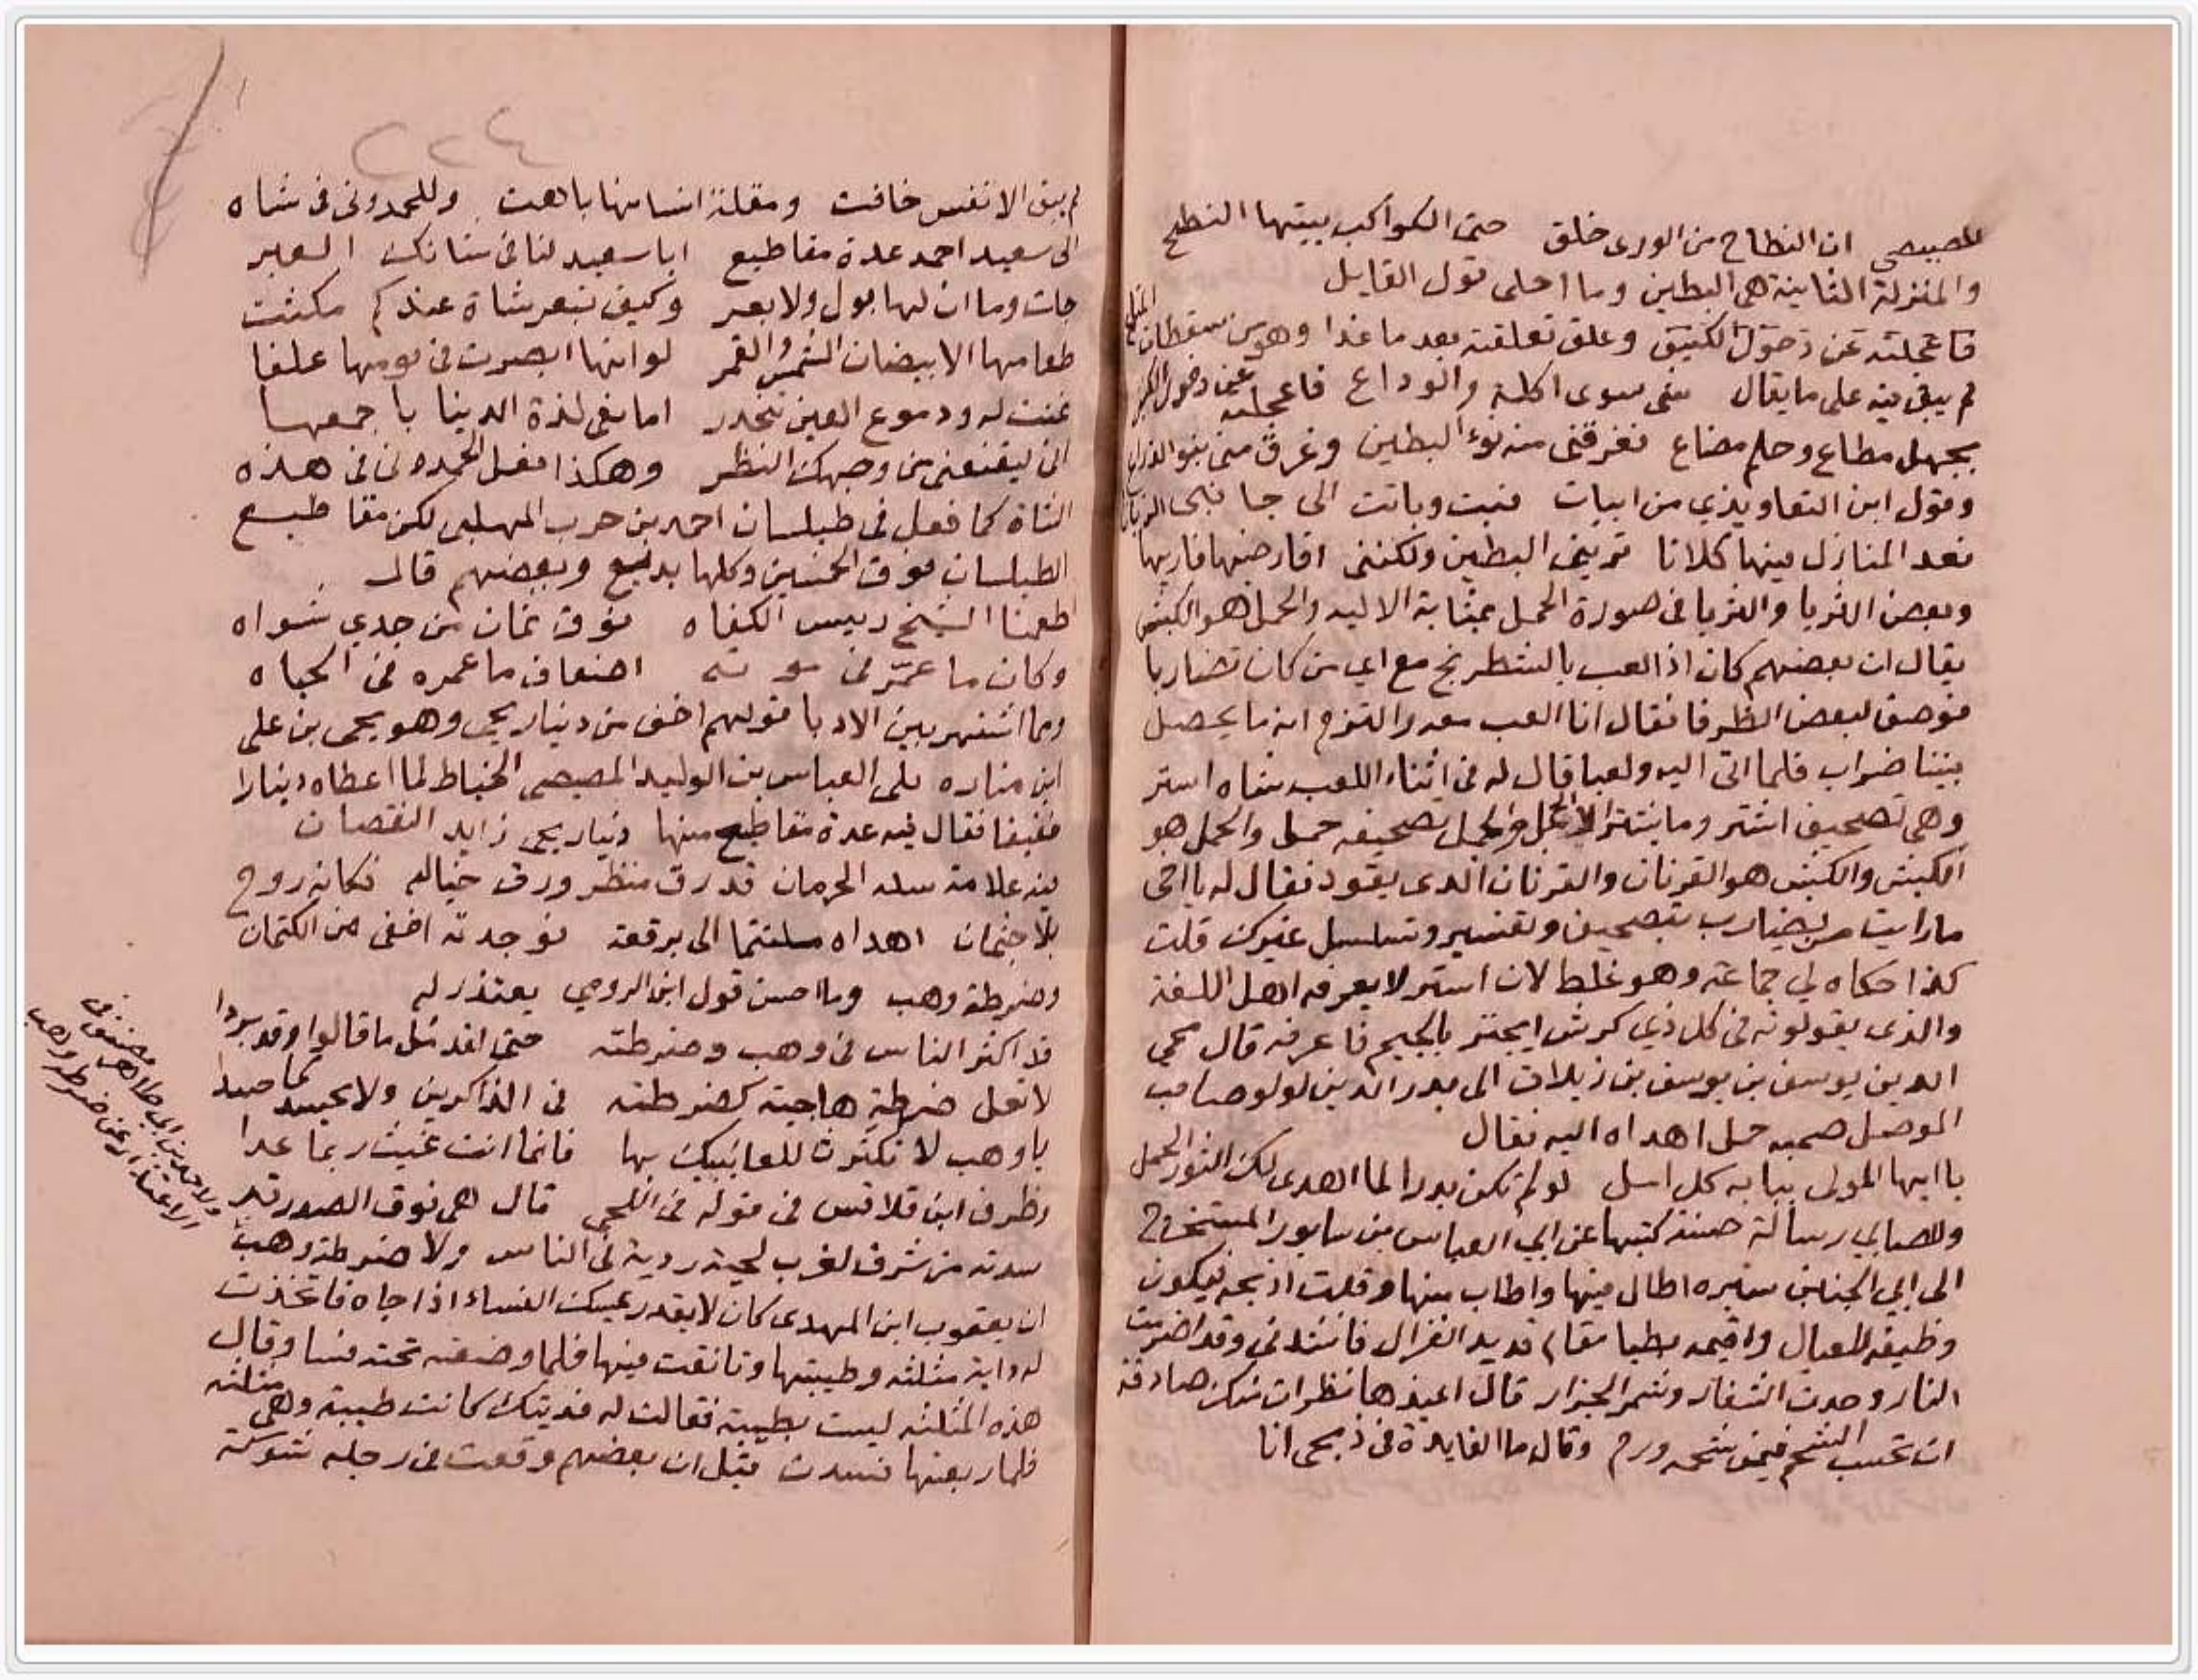 للمصيصى ان النطاح من الورى خلق حتى الكواكب بيتها النطح
والمنزلة الثانية هى البطين وما احلى قول القايل
فاعجلته عن دخول الكنيف وعلق تعلقته بعد ما غدا وهو من سقطات المتاع
لم يبق فيه على ما يقال شى سوى اكلة والوداع فاعجلته عن دخول الكنيف
بجهل مطاع وحلم مضاع فغرقنى منه نوء البطين وغرق منى بنو الذراع
وقول ابن التعاويذي من ابيات فبت وباتت الى جانبى
نعد المنازل فيها كلانا تريني البطين ولكننى اقارضها فاريها
وبعض الثريا والثريا فى صورة الحمل بمثابة الاليه والحمل هو الكبش
يقال ان بعضهم كان اذا لعب بالشطرنج مع اي من كان تضاربا
فوصف لبعض الظرفا فقال انا العب معه والتزم انه ما يحصل
بيننا ضراب فلما اتى اليه ولعبا قال له فى اثناء اللعب شاه استر
وهى تصحيف اشتر وما يشتر الا الجمل والجمل تصحيفه حمل والحمل هو
الكبش والكبش هو القرنان والقرنان الذى يقود فقال له يا اخى
ما رايت من يضارب بتصحيف وتفسير وتسلسل غيرك قلت
كذا حكاه لي جماعة وهو غلط لان استر لا يعرفه اهل اللغة
والذى يقولونه فى كل ذي كرش ايجتر بالجيم فاعرفه قال محي
الدين يوسف بن يوسف بن زبلاق الى بدر الدين لولو صاحب
الموصل صحبه حمل اهداه اليه فقال
يا ايها المولى ببابه كل امل لو لم تكن بدرا لما اهدى لك الثور الحمل
وللصابي رسالة حسنة كتبها عن ابي العباس بن سابور المستخرج
الى ابي الخنابس سيره اطال فيها واطاب منها وقلت اذبحه فيكون
وظيفه للعيال واقيمه رطبا مقام قديد الغزال فانشدنى وقد اضرمت
النار وحدت الشفار وشمر الجزار قال اعيذها نظرات منك صادقة
ان تحسب الشحم فيمن شحمه ورم وقال ما الفايدة فى ذبحى انا
٢٢٤
لم يبق الا نفس خافت ومقلة انسانها باهت وللحمدونى فى شاه
الى سعيد احمد عدة مقاطيع ابا سعيد لنا فى شاتك العبر
جات وما ان لها بول ولا بعر وكيف تبعر شاة عندكم مكثت
طعامها الابيضان الشمس والقمر لو انها ابصرت فى نومها علفا
غنت له ودموع العين تنحدر اما نفى لذة الدنيا باجمعها
انى ليقنعنى من وجهك النظر وهكذا فعل الحمدونى فى هذه
الشاة كما فعل فى طيلسان احمد بن حرب المهلبى لكن مقاطيع
الطيلسان فوق الخمسين وكلها بديع وبعضهم قال
اطعمنا الشيخ رييس الكفاه فوق ثمان من جدي شواه
وكان ما عمّر فى موته اضعاف ما عمره فى الحياه
ومما اشتهر بين الادبا قولهم اخف من دينار يحيى وهو يحيى بن على
ابن مناره على العباس بن الوليد المصيصى الخياط لما اعطاه دينارا
خفيفا فقال فيه عدة مقاطيع منها دينار يحيى زايد النقصان
فيه علامة سكه الحرمان قد رق منظر ورق خياله فكانه روح
بلا جثمان اهداه مكتتما الى برقعة فوجدته اخفى من الكتمان
وضرطة وهب وما احسن قول ابن الرومي يعتذر له
قد اكثر الناس فى وهب وضرطته حتى لقد مُل ما قالوا وقد بردا
لا تعل ضرطة هاجيه كضرطته فى الذاكرين ولا يحسد كما حسدا
يا وهب لا تكترث للعائبيك بها فانما انت غيث ربما رعدا
وظرف ابن قلاقس فى قوله فى اللحى قال هى فوق الصدر قد
سدته من شرق لغرب لحية رديه فى الناس ولا ضرطة وهب
ان يعقوب ابن المهدى كان لا يقدر يمسك الفساء اذا جاه فاتخذت
له داية مثلثه وطيبتها وتانقت فيها فلما وضعته تحته فسا وقال
هذه المثلثه ليست بطيبة فقالت له فديتك كانت طيبة وهى مثلثه
فلما ربعتها فسدت قيل ان بعضهم وقعت فى رجله شوكة
ولاحمد بن ابى طاهر مصنف فى
الاعتذار عن ضرطة وهب